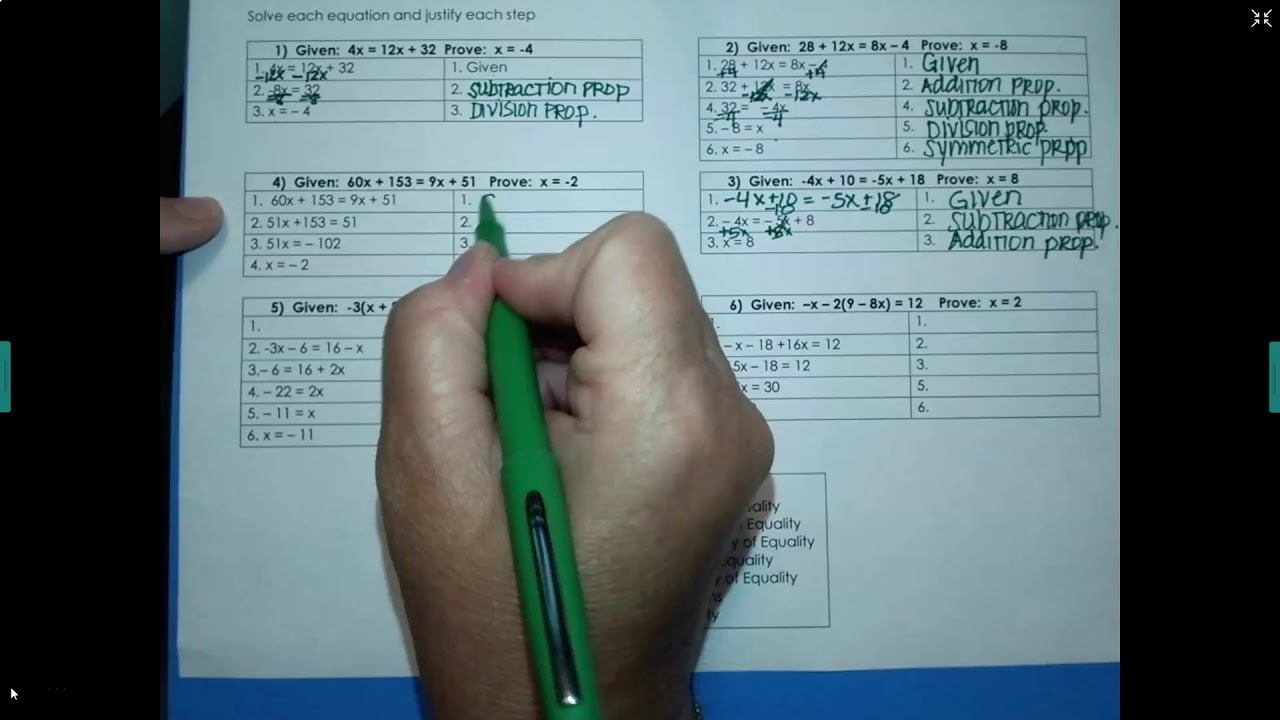 Solve each equation and justify each step
1) Given: 4x = 12x + 32 Prove: x = -4
1. 4x = 12x + 32 1. Given
-12x -12x
2. -8x = 32 2. SUBTRACTION PROP
-8 -8
3. x = – 4 3. DIVISION PROP.
2) Given: 28 + 12x = 8x – 4 Prove: x = -8
1. 28 + 12x = 8x – 4 1. Given
+4 +4
2. 32 + 12x = 8x 2. Addition prop.
-12x -12x
4. 32 = – 4x 4. subtraction prop.
-4 -4
5. – 8 = x 5. Division prop.
6. x = – 8 6. Symmetric prop
4) Given: 60x + 153 = 9x + 51 Prove: x = -2
1. 60x + 153 = 9x + 51 1.
2. 51x +153 = 51 2.
3. 51x = – 102 3.
4. x = – 2
3) Given: -4x + 10 = -5x + 18 Prove: x = 8
1. -4x+10 = -5x+18 1. Given
-18 -18
2. – 4x = – 5x + 8 2. Subtraction prop.
+5x +5x
3. x = 8 3. Addition prop.
5) Given: -3(x +
1.
2. -3x – 6 = 16 – x
3. – 6 = 16 + 2x
4. – 22 = 2x
5. – 11 = x
6. x = – 11
6) Given: –x – 2(9 – 8x) = 12 Prove: x = 2
1.
– x – 18 +16x = 12 2.
5x – 18 = 12 3.
x = 30 5.
6.
Equality
y of Equality
Equality
of Equality